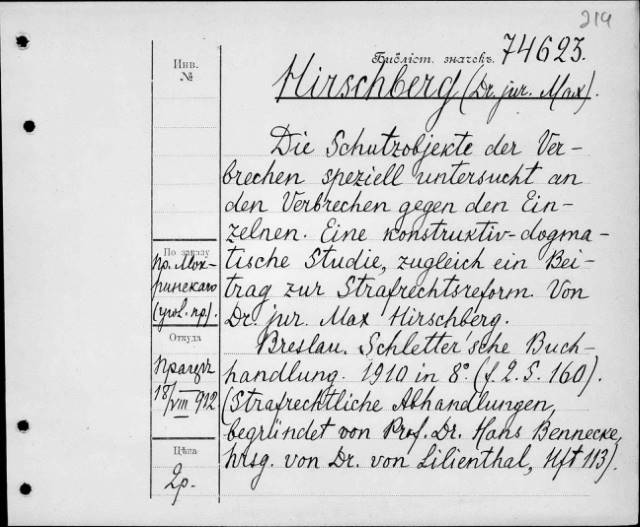 219
Библіст. значекъ. 74623.
Инв.
№
Hirschberg (Dr. jur. Max).
Die Schutzobjekte der Ver-
brechen speziell untersucht an
den Verbrechen gegen den Ein-
zelnen. Eine konstruktiv-dogma-
tische Studie, zugleich ein Bei-
trag zur Strafrechtsreform. Von
Dr. jur. Max Hirschberg.
Breslau. Schletter'sche Buch-
handlung. 1910 in 8° (f. 2. S. 160).
(Strafrechtliche Abhandlungen,
begründet von Prof. Dr. Hans Bennecke,
hrsg. von Dr. von Lilienthal, Hft 113).
По заказу
пр. Мок-
ринскаго
(угол. пр).
Откуда
18/VIII 912
Цѣна
2р.